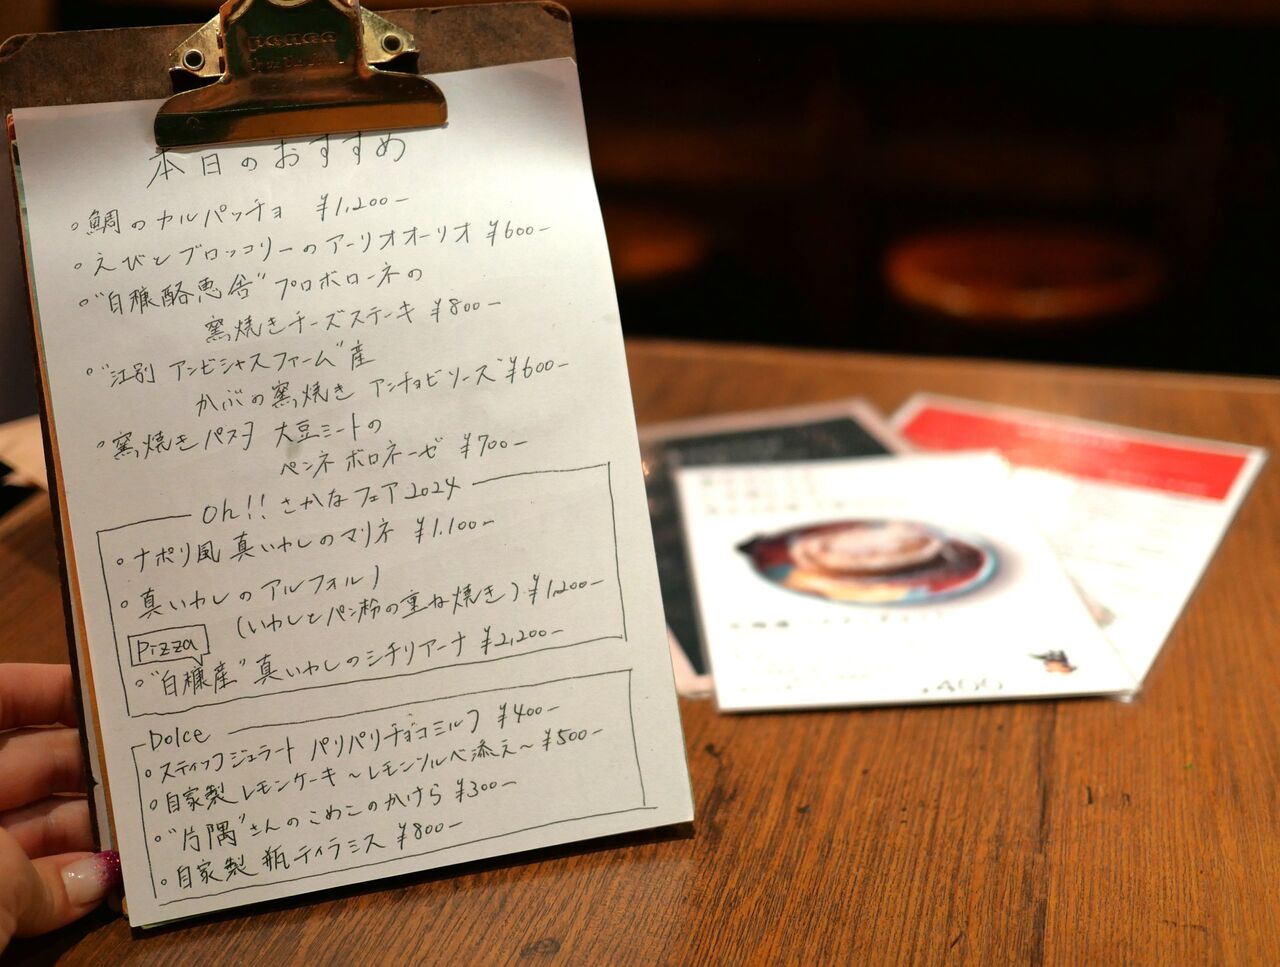 本日のおすすめ
。鯛のカルパッチョ ¥1,200-
。えびとブロッコリーのアーリオオーリオ ¥600-
。"白糠酪恵舎"プロボローネの
窯焼きチーズステーキ ¥800-
。"江別 アンビシャスファーム"産
かぶの窯焼き アンチョビソース ¥600-
。窯焼きパスタ 大豆ミートの
ペンネ ボロネーゼ ¥700-
Oh!! さかなフェア2024
。ナポリ風 真いわしのマリネ ¥1,100-
。真いわしのアルフォルノ
(いわしとパン粉の重ね焼き) ¥1,200-
Pizza
。"白糠産"真いわしのシチリアーナ ¥2,200-
Dolce
。スティックジェラート パリパリチョコミルク ¥400-
。自家製レモンケーキ〜レモンソルベ添え〜 ¥500-
。"片隅"さんのこめこのかけら ¥300-
。自家製 瓶ティラミス ¥800-